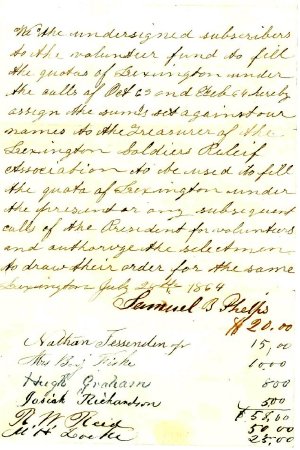 We the undersigned subscribers
to the volunteer fund to fill
the quotas of Lexington under
the calls of Oct 63 and Feb 64 hereby
assign the sums set against our
names to the Treasurer of the
Lexington Soldiers Releif
Association to be used to fill
the quota of Lexington under
the present or any subsequent
calls of the President for volunteers
and authorize the selectmen
to draw their order for the same
Lexington July 25th 1864
Samuel B Phelps
$20.00
Nathan Fessenden jr 15,00
Mrs Benj Fiske 1000
Hugh Graham 800
Josiah Richardson 500
$58,00
R. W. Reed 50 00
M H Locke 25.00